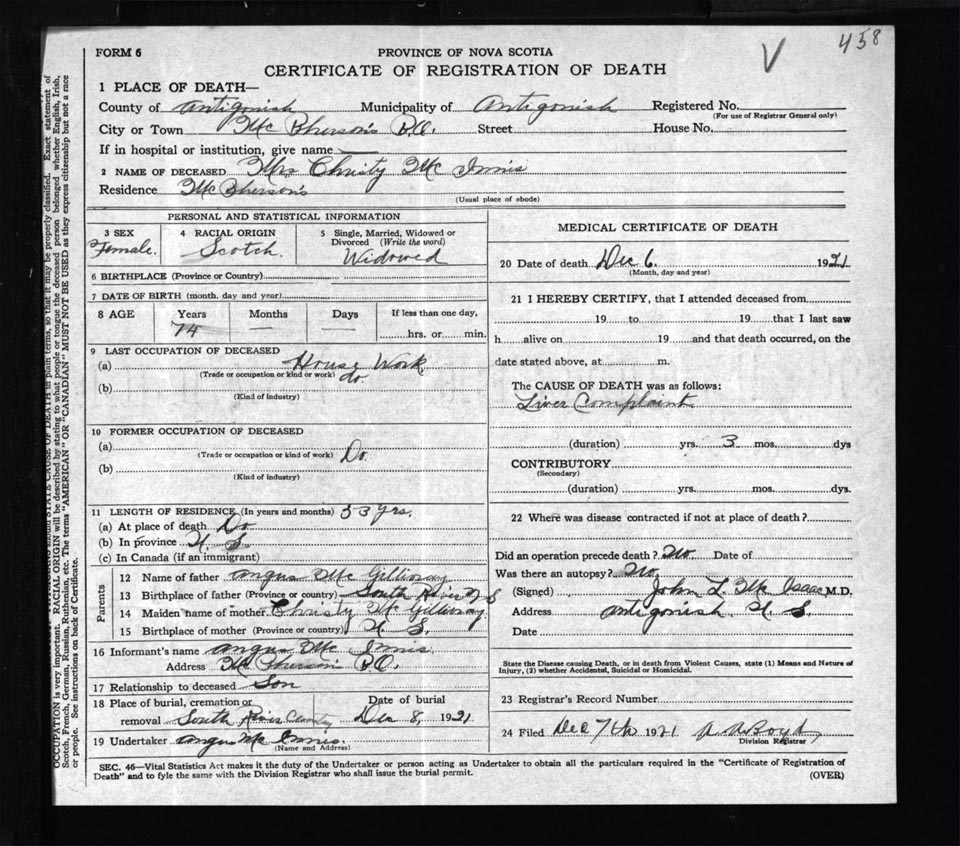 458
V
FORM 6
PROVINCE OF NOVA SCOTIA
CERTIFICATE OF REGISTRATION OF DEATH
1 PLACE OF DEATH—
County of Antigonish Municipality of Antigonish Registered No.
(For use of Registrar General only)
City or Town McPherson's P.O. Street House No.
If in hospital or institution, give name —
2 NAME OF DECEASED Mrs Christy Mc Innis
Residence McPherson's
(Usual place of abode)
PERSONAL AND STATISTICAL INFORMATION
3 SEX
Female.
4 RACIAL ORIGIN
Scotch.
5 Single, Married, Widowed or
Divorced (Write the word)
Widowed
6 BIRTHPLACE (Province or Country)
7 DATE OF BIRTH (month, day and year)
8 AGE Years Months Days If less than one day,
74 — — hrs. or min.
9 LAST OCCUPATION OF DECEASED
(a) House Work
(Trade or occupation or kind or work)
(b) do.
(Kind of industry)
10 FORMER OCCUPATION OF DECEASED
(a) Do.
(Trade or occupation or kind of work)
(b)
(Kind of industry)
11 LENGTH OF RESIDENCE (In years and months) 53 yrs.
(a) At place of death Do
(b) In province N. S.
(c) In Canada (if an immigrant)
Parents
12 Name of father Angus Mc Gillivray
13 Birthplace of father (Province or country) South River N S
14 Maiden name of mother Christy Mc Gillivray
15 Birthplace of mother (Province or country) N. S.
16 Informant's name Angus Mc Innis
Address McPherson's P.O.
17 Relationship to deceased Son
18 Place of burial, cremation or Date of burial
removal South River Dec 8, 1921
19 Undertaker Angus Mc Innis.
(Name and Address)
MEDICAL CERTIFICATE OF DEATH
20 Date of death Dec 6. 1921
(Month, day and year)
21 I HEREBY CERTIFY, that I attended deceased from
19 to 19 that I last saw
h alive on 19 and that death occurred, on the
date stated above, at m.
The CAUSE OF DEATH was as follows:
Liver Complaint
(duration) yrs. 3 mos. dys
CONTRIBUTORY
(Secondary)
(duration) yrs. mos. dys.
22 Where was disease contracted if not at place of death?
Did an operation precede death? No Date of
Was there an autopsy? No.
(Signed) John L. Mc Isaac M.D.
Address Antigonish N. S.
Date
State the Disease causing Death, or in death from Violent Causes, state (1) Means and Nature of
Injury, (2) whether Accidental, Suicidal or Homicidal.
23 Registrar's Record Number
24 Filed Dec 7th 1921 Boyd
Division Registrar
SEC. 46—Vital Statistics Act makes it the duty of the Undertaker or person acting as Undertaker to obtain all the particulars required in the "Certificate of Registration of
Death" and to fyle the same with the Division Registrar who shall issue the burial permit.
(OVER)
OCCUPATION is very important. RACIAL ORIGIN will be described by stating to what people or tongue the deceased person belonged whether English, Irish,
Scotch, French, German, Russian, Ruthenian, etc. The terms "AMERICAN" OR "CANADIAN" MUST NOT BE USED as they express citizenship but not a race
or people. See instructions on back of Certificate.